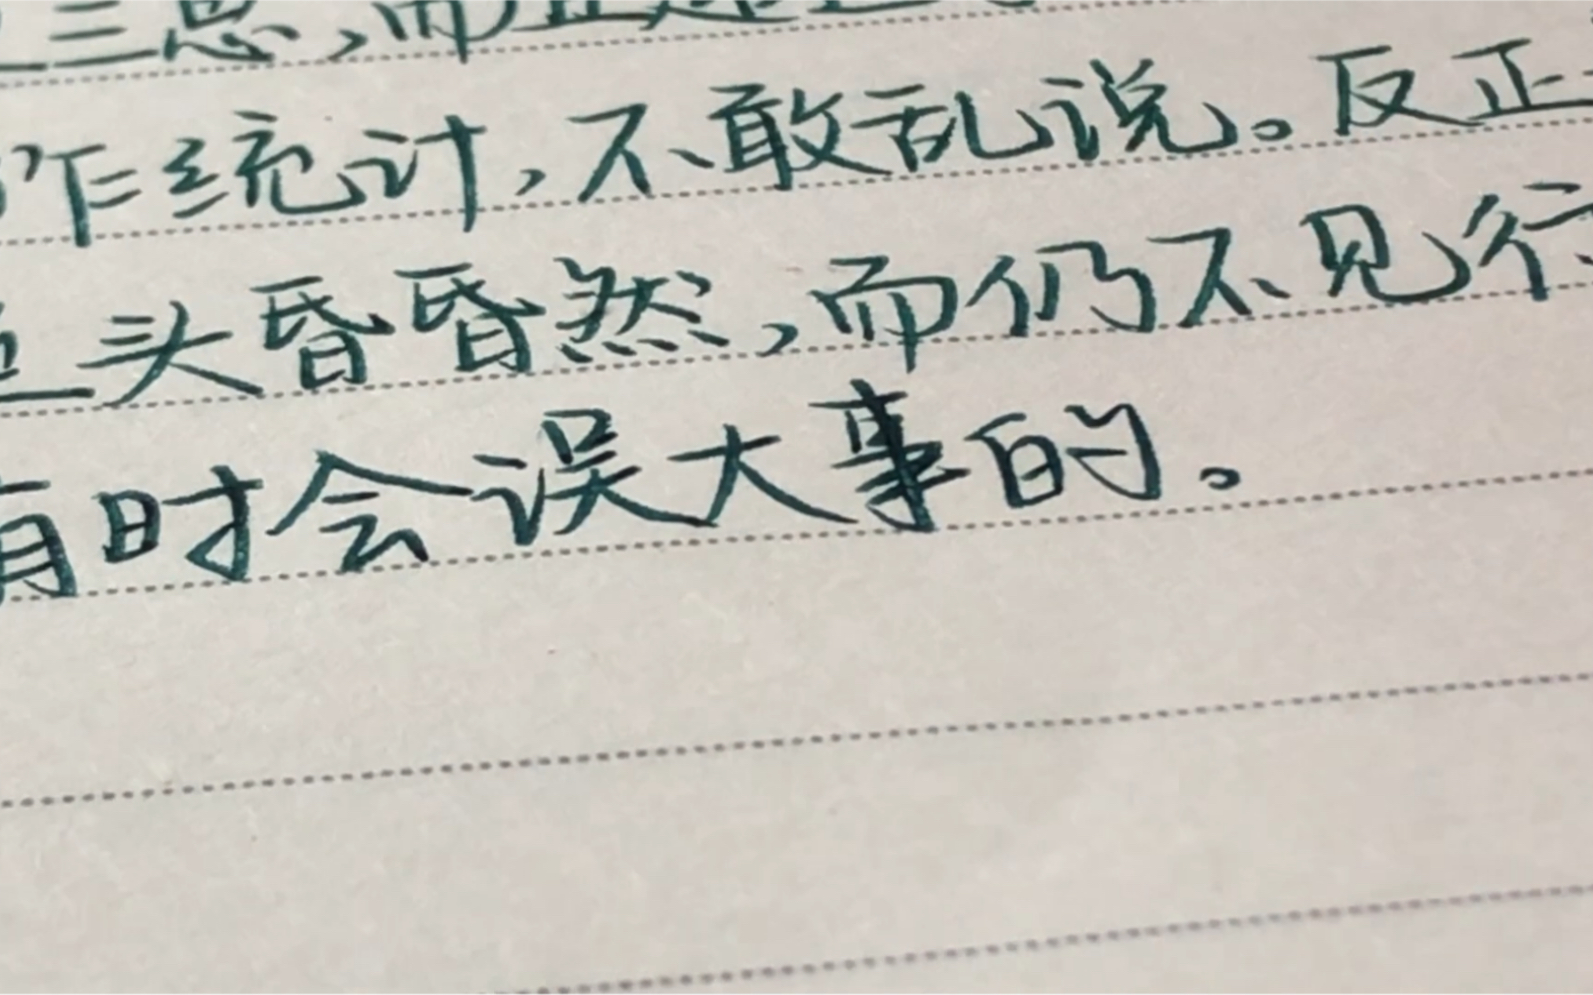 三思,而且
作统计,不敢乱说。反正
头昏昏然,而仍不见行
有时会误大事的。